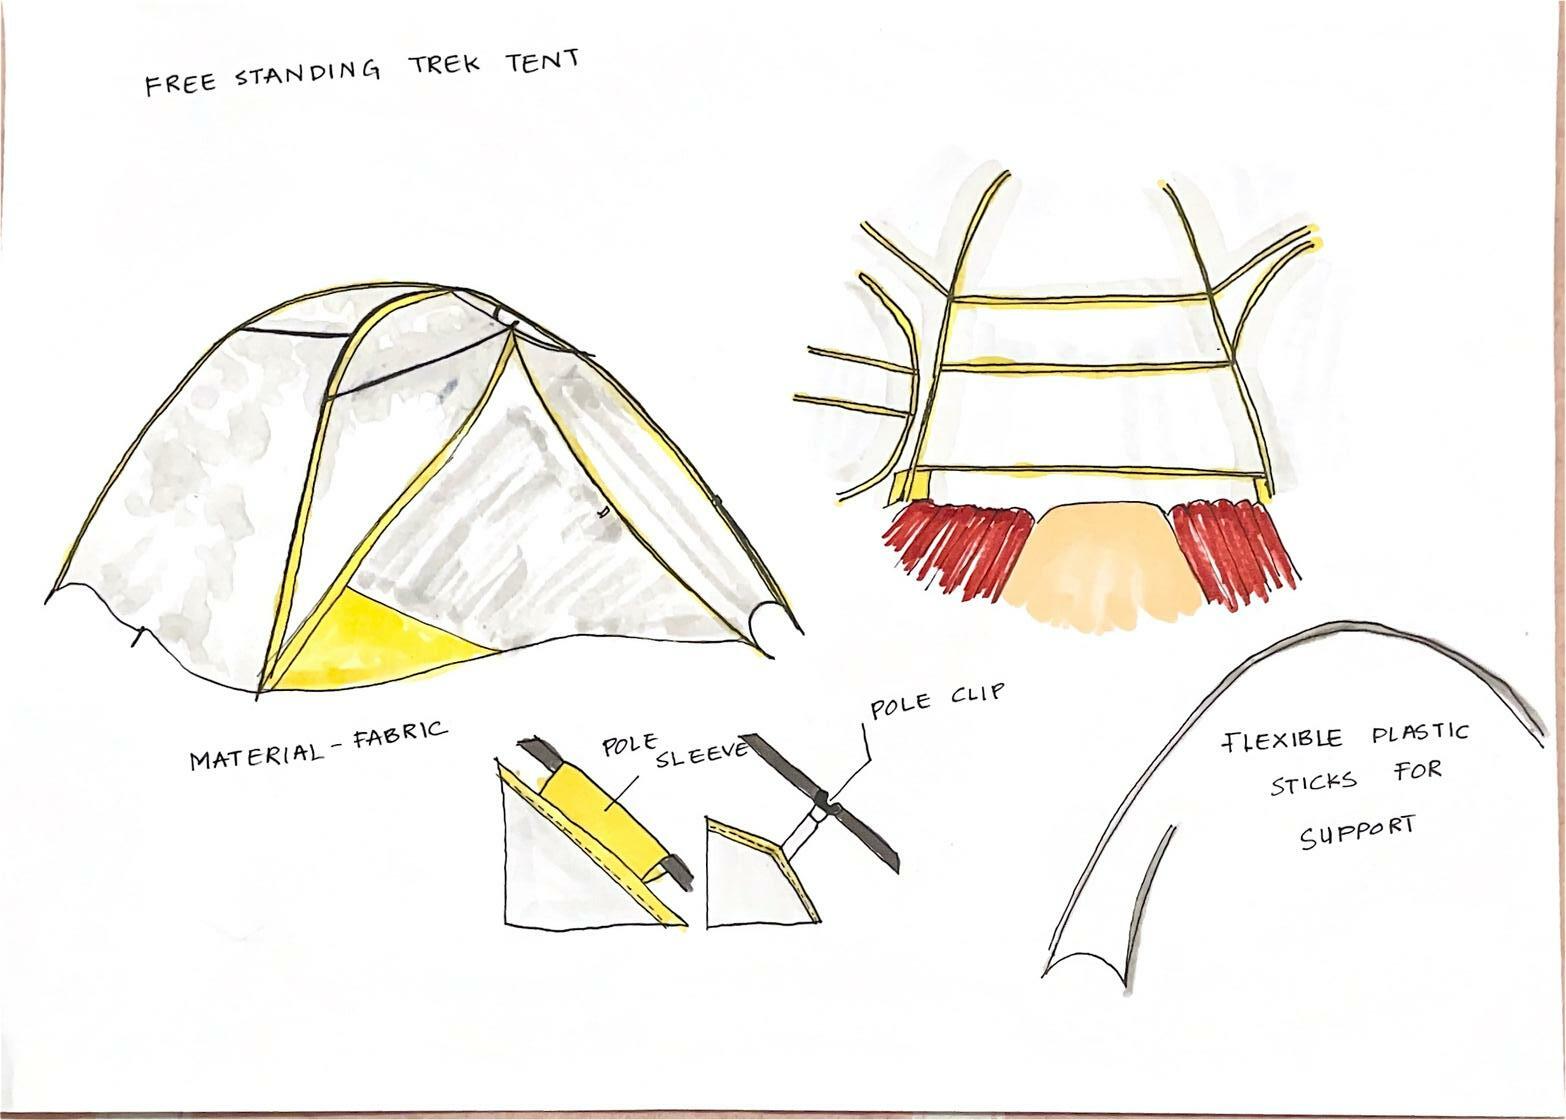 FREE STANDING TREK TENT
MATERIAL - FABRIC
POLE
SLEEVE
POLE CLIP
FLEXIBLE PLASTIC
STICKS FOR
SUPPORT